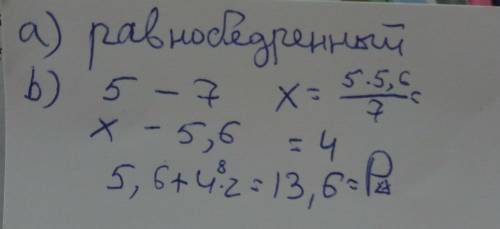 a) равнобедренный
b) 5 – 7 x = 5·5,6/7 =
x – 5,6 = 4
5,6+4·2⁸=13,6=P△